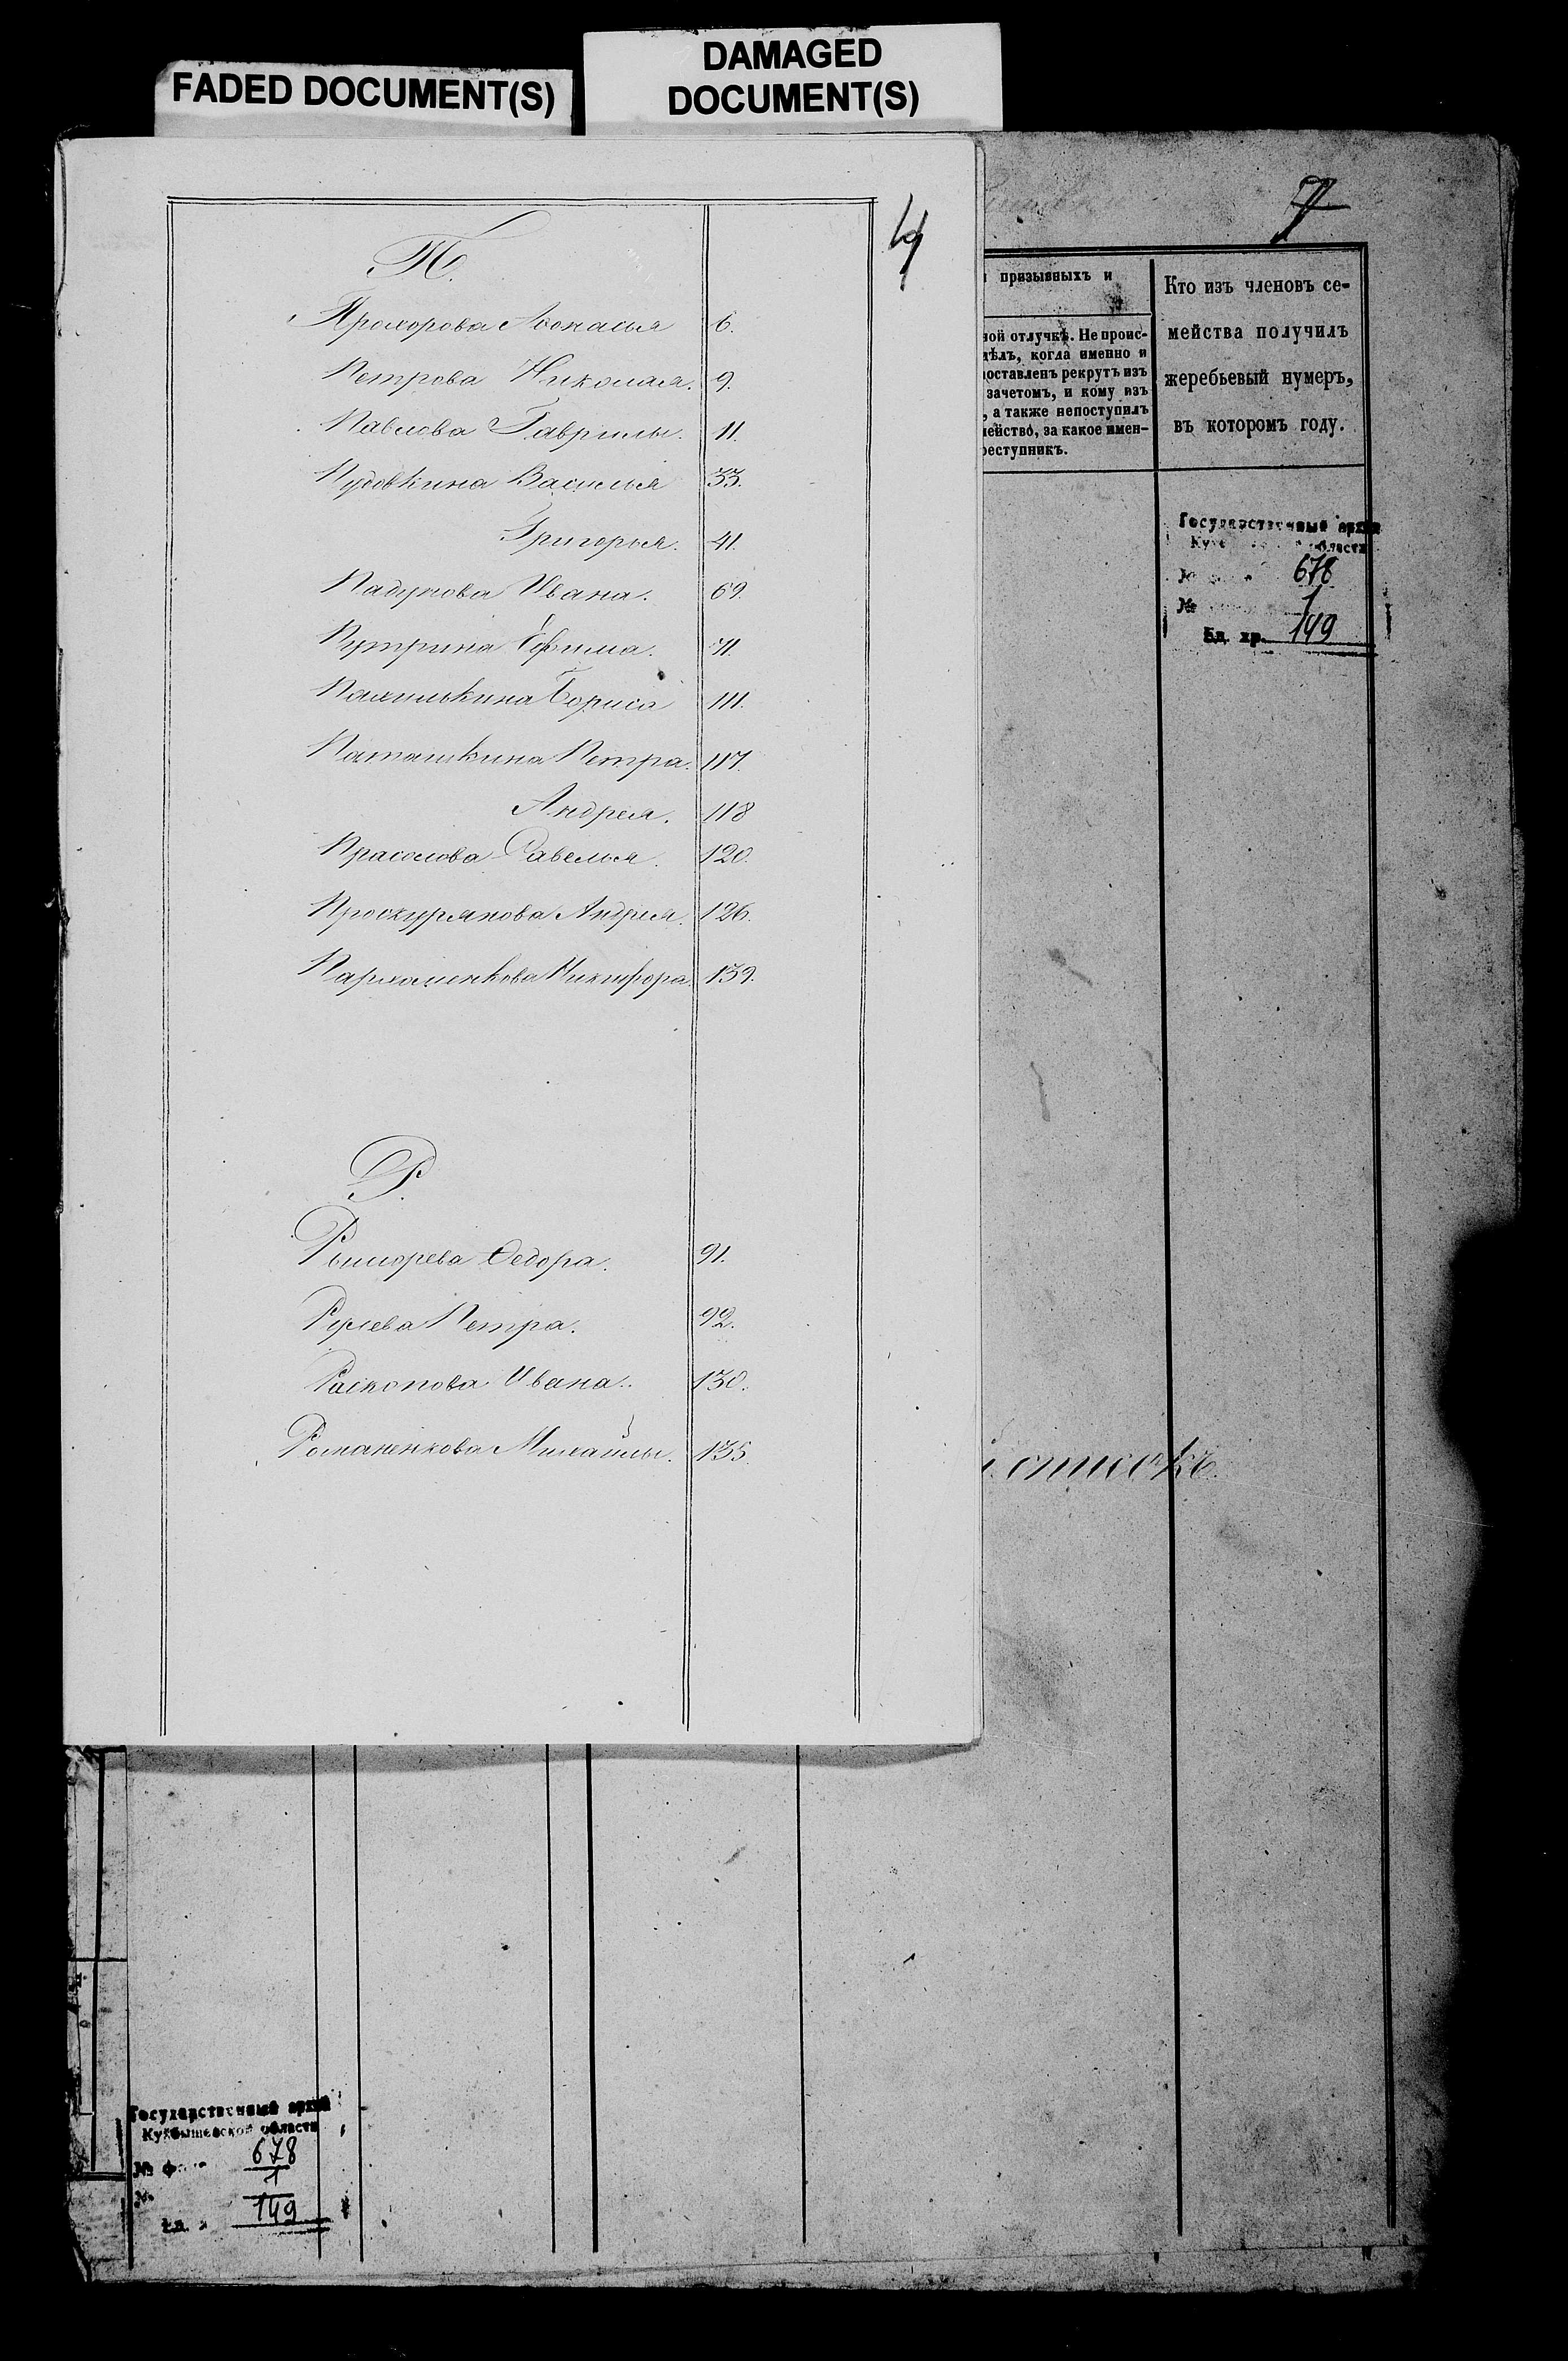 FADED DOCUMENT(S)
DAMAGED
DOCUMENT(S)
4
П.
Прохорова Афонасья 6.
Петрова Николая. 9.
Павлова Гаврилы. 11.
Пудовкина Василья 33.
Григорья. 41.
Падукова Ивана. 69.
Путрина Ефима. 71.
Бориса 111.
Паташкина Петра. 117.
Андрея. 118
Прасолова Савелья. 120.
Проскурякова Андрея. 126.
Пархоменкова Никифора. 139.
Р.
Федора. 91.
Петра. 92.
Расколова Ивана. 130.
Романенкова Михайлы. 135.
7
призывныхъ и
ной отлучкѣ. Не проис-
дѣлъ, когда именно и
поставленъ рекрутъ изъ
зачетомъ, и кому изъ
, а также непоступилъ
мейство, за какое имен-
реступникъ.
Кто изъ членовъ се-
мейства получилъ
жеребьевый нумеръ,
въ которомъ году.
Государственный архив
области
678
№ 1
Ед. хр. 149
списокъ.
Государственный архив
Куйбышевской области
№ 678
№ 1
149